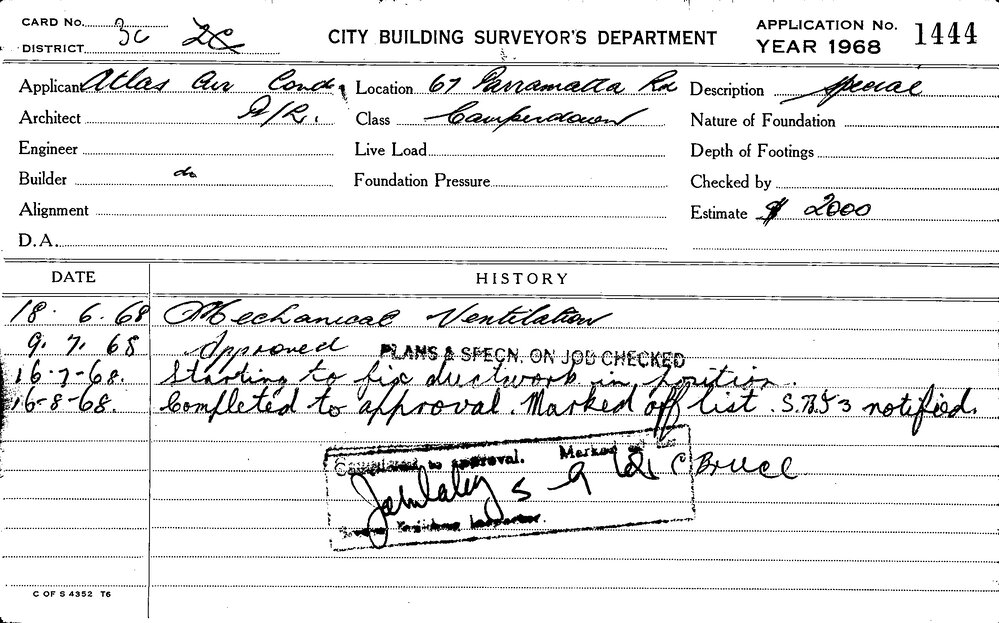 CARD No. 3C 2C
DISTRICT
CITY BUILDING SURVEYOR'S DEPARTMENT
APPLICATION No. 1444
YEAR 1968
Applicant Atlas Air Cond.
Location 67 Parramatta Rd
Description Special
Architect P/L.
Class Camperdown
Nature of Foundation
Engineer
Live Load
Depth of Footings
Builder do
Foundation Pressure
Checked by
Alignment
Estimate $ 2000
D.A.
DATE HISTORY
18. 6. 68 Mechanical Ventilation
9. 7. 68 Approved PLANS & SPECN. ON JOB CHECKED
16-7-68. Starting to fix ductwork in position.
16-8-68. Completed to approval. Marked off list. S.B.& 3 notified.
Completed to approval. Marked off
C Bruce
C OF S 4352 T6